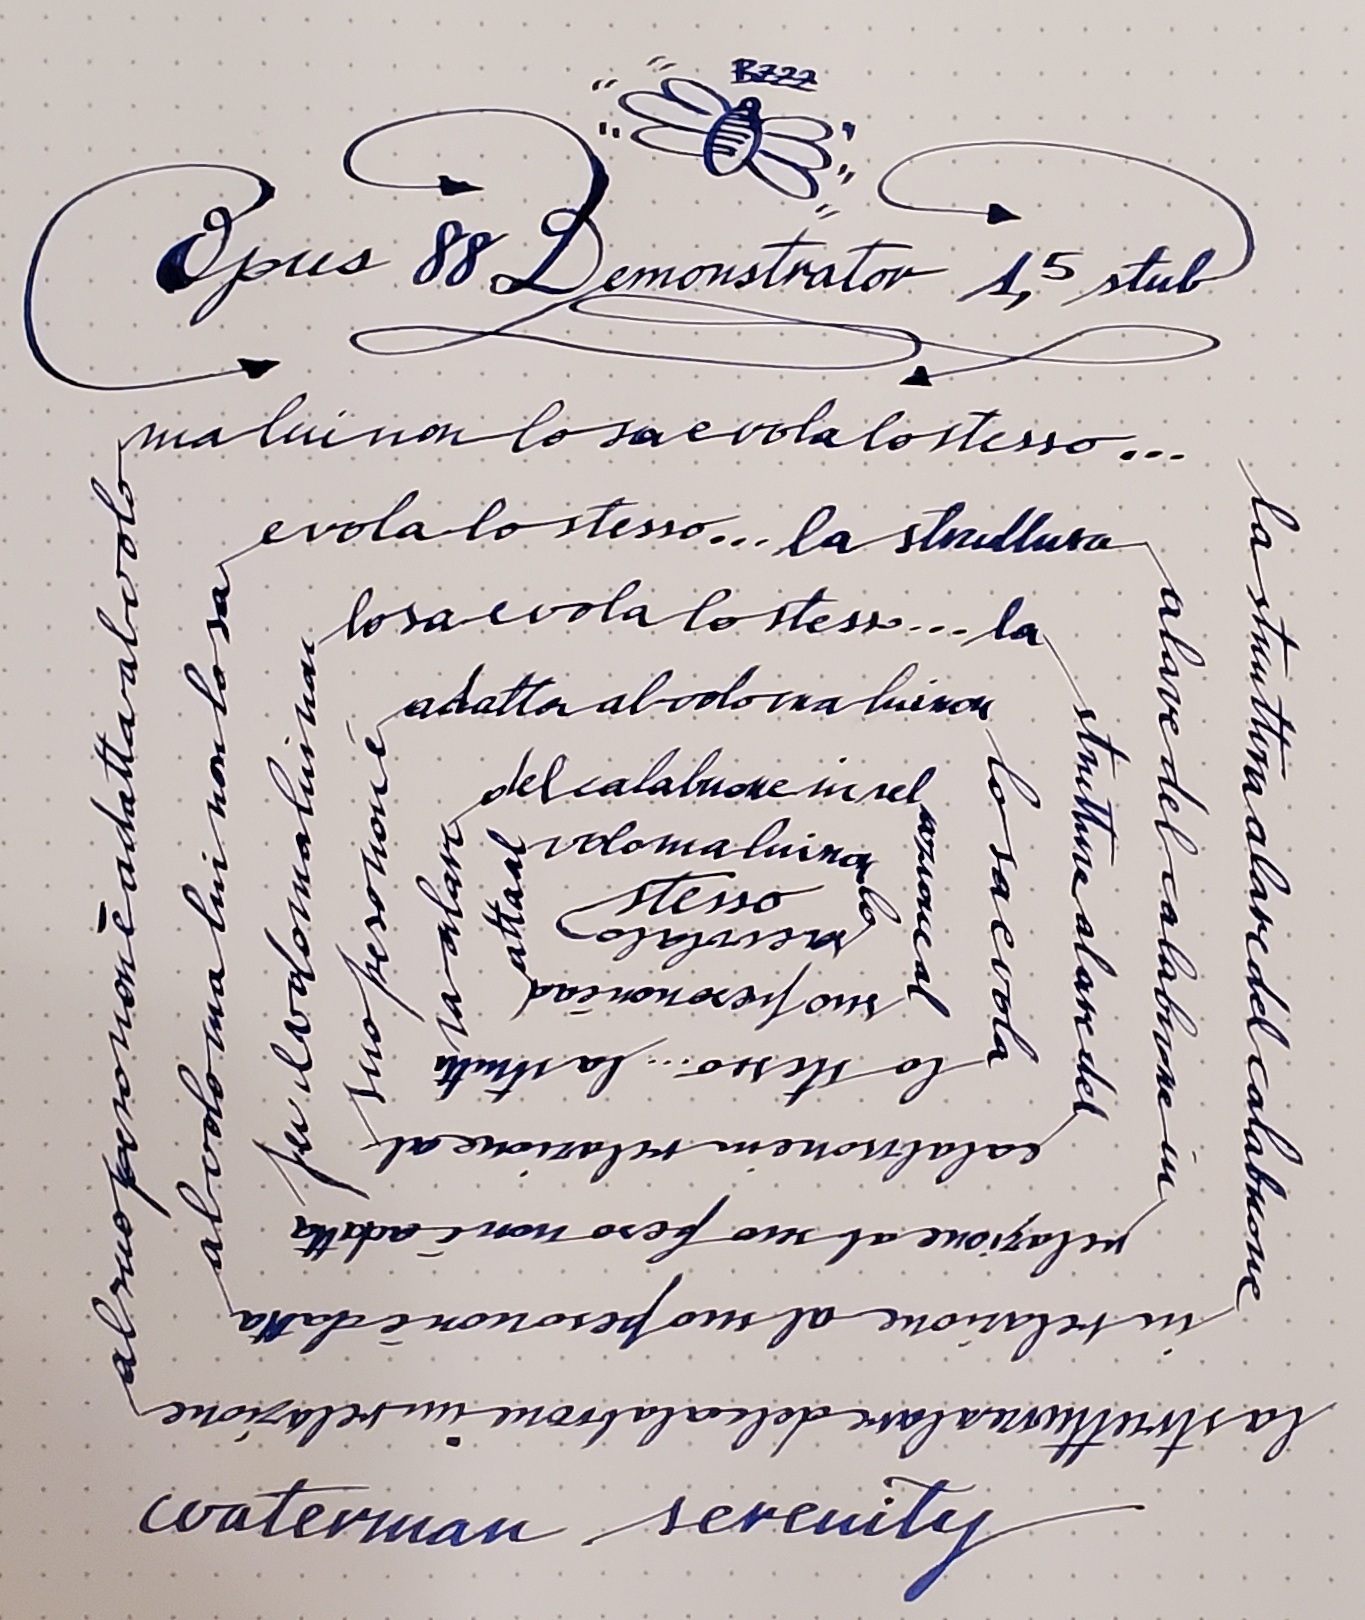 BZZZ
Opus 88 Demonstrator 1,5 stub
la struttura alare del calabrone in relazione
al suo peso non è adatta al volo
ma lui non lo sa e vola lo stesso...
la struttura alare del calabrone
in relazione al suo peso non è datta
al volo ma lui non lo sa
e vola lo stesso... la struttura
alare del calabrone in
relazione al suo peso non è adatta
per il volo ma lui non
lo sa e vola lo stesso... la
struttura alare del
calabrone in relazione al
suo peso non è
adatta al volo ma lui non
lo sa e vola
lo stesso... la strutt
ura alare
del calabrone in rel
azione al
suo peso non è ad
atta al
volo ma lui non
lo
sa e vola lo
stesso
waterman serenity